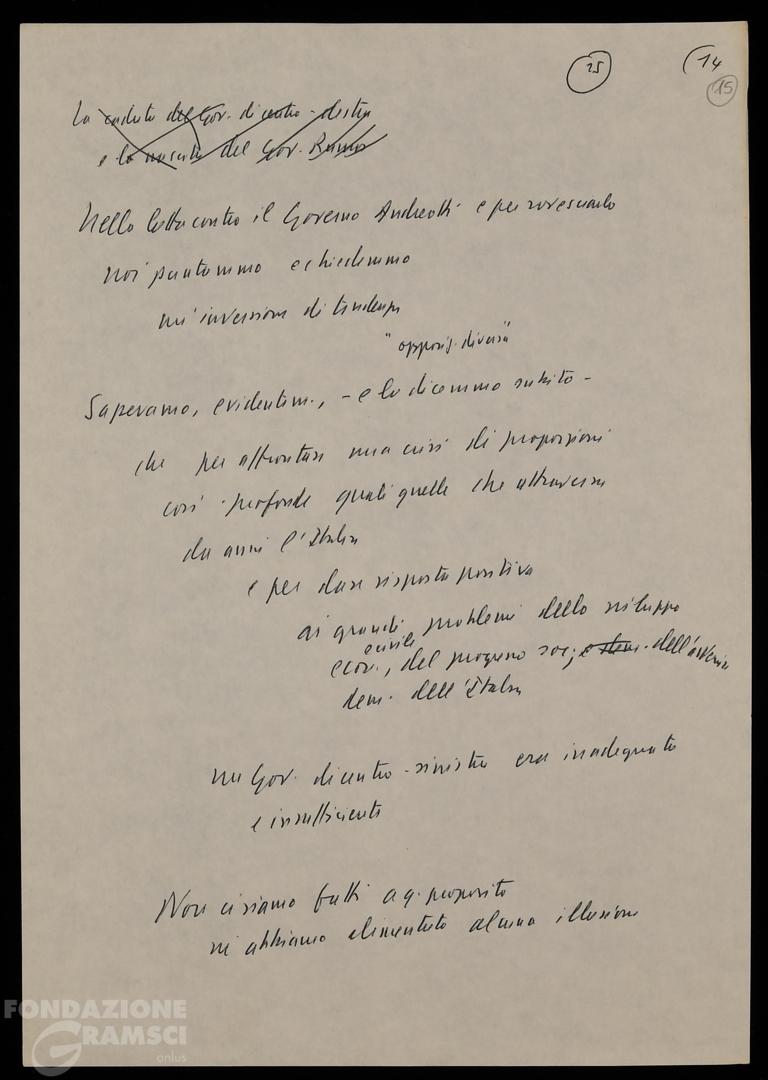 25
14
15
La caduta del Gov. di centro-destra
e la nascita del Gov. Rumor
Nella lotta contro il Governo Andreotti e per rovesciarlo
noi puntammo e chiedemmo
un'inversione di tendenza
"opposiz. diversa"
Sapevamo, evidentem., - e lo dicemmo subito -
che per affrontare una crisi di proporzioni
così profonde quali quelle che attraversa
da anni l'Italia
e per dare risposta positiva
ai grandi problemi dello sviluppo
civile
econ., del progresso soc., e dell'avvenire
dem. dell'Italia
un Gov. di centro-sinistra era inadeguato
e insufficiente
Non ci siamo fatti a q. proposito
né abbiamo alimentato alcuna illusione
FONDAZIONE
GRAMSCI
onlus